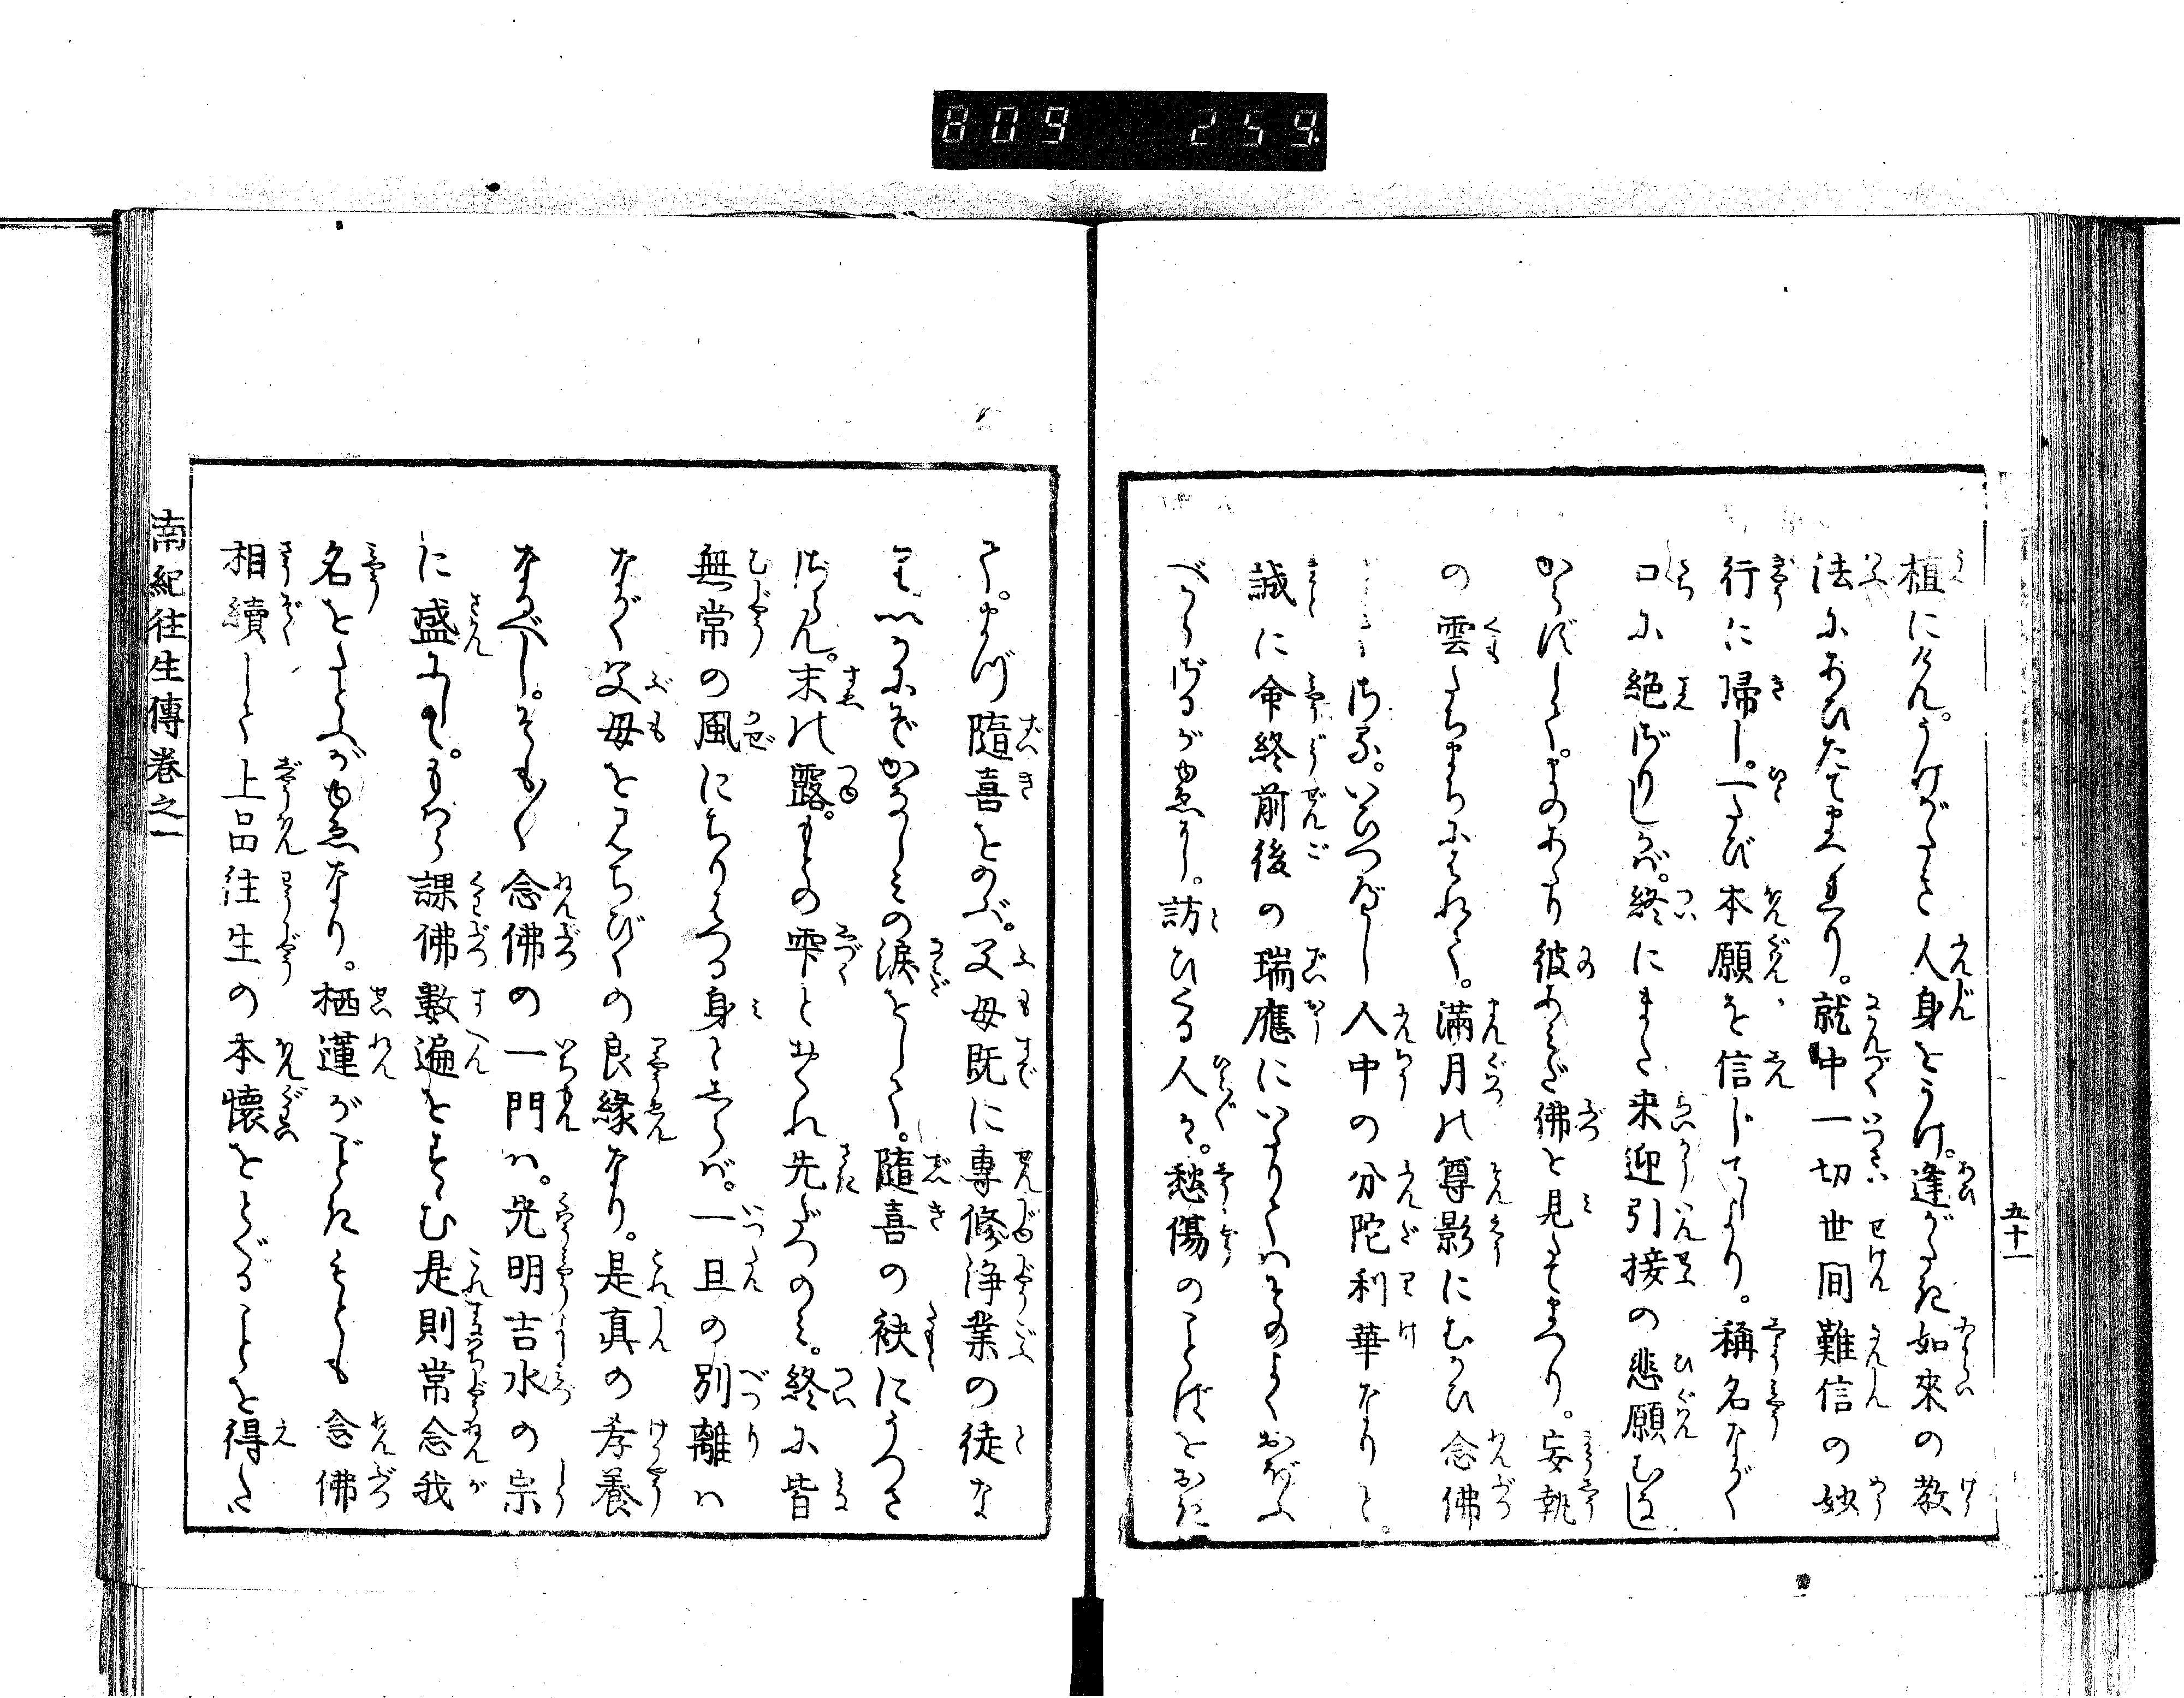 809 259
五十一
植にけん。うけがたき人身をうけ。逢がたき如來の教
法にあひたてまへり。就中一切世間難信の妙
行に帰し。一たび本願を信じてより。稱名ながく
口に絶ざりしかば。終にまた来迎引接の悲願むなし
からずして。まのあたり彼あみだ佛を見たてまつり。妄執
の雲たちまちにはれて。滿月の尊影にむかひ念佛
ざらん。いひつべし人中の分陀利華なりと。
誠に命終前後の瑞應にいたりては其のよくおよぶ
べからざるが故に。訪ひくる人々。愁傷のことばをおき
て。まづ隨喜をのぶ。父母既に專修浄業の徒な
れハいかにぞかなしみの涙をして。隨喜の袂にうつさ
ざらん。末の露。もとの雫とおくれ先だつのミ。終に皆
無常の風にちりうする身としらバ。一旦の別離ハ
ながく父母をみちびくの良緣なり。是真の孝養
なるべし。そも〱念佛の一門ハ。光明吉水の宗
に盛にして。もつぱら課佛數遍をすゝむ是則常念我
名をたとぶが故なり。栖蓮がごときもとも念佛
相續して上品往生の本懐をとぐることを得た
南紀往生傳巻之一